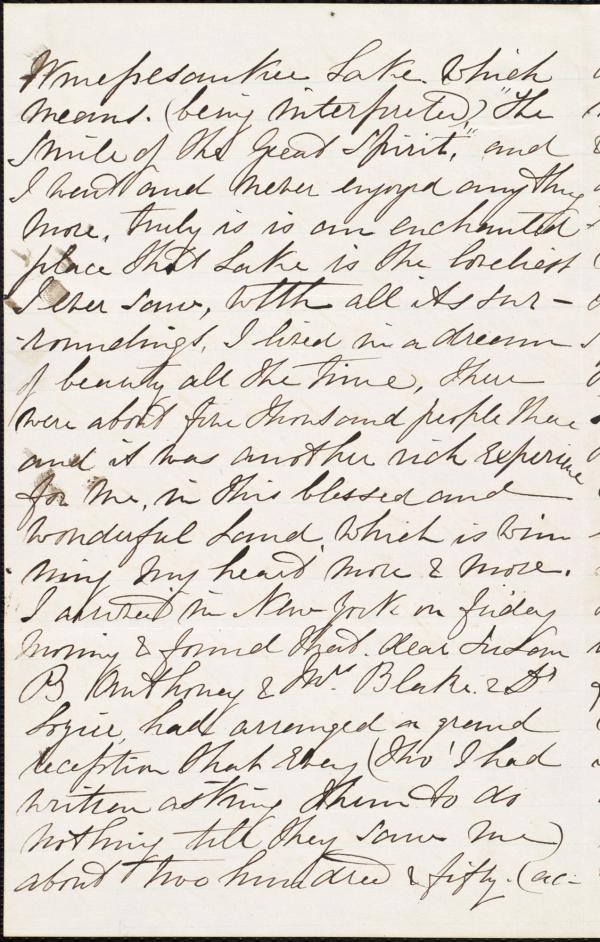 Winepesaukee Lake. Which
means. (being interpreted,) "The
Smile of the Great Spirit," and
I went and never enjoyed any thing
more. truly is is an enchanted
place that Lake is the loveliest
I ever saw, with all its sur-
roundings. I lived in a dream
of beauty all the time, there
were about five thousand people there
and it was another rich experience
for me, in this blessed and
wonderful Land, which is win
ning my heart more & more.
I arrived in New York on friday
morning & found that. dear Susan
B Anthoney & Mrs. Blake. & Dr
Lozier, had arranged a grand
reception that Eveg (tho' I had
written asking them to do
nothing till they saw me)
about two hundred & fifty. (ac-